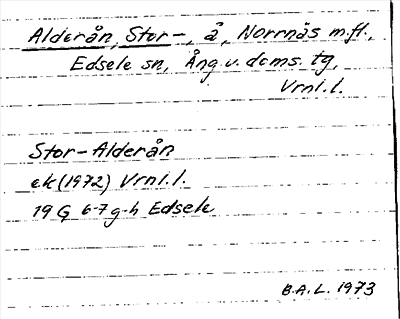 Alderån, Stor-, å, Norrnäs m.fl.,
Edsele sn, Ång. v. dcms. tg,
Vrnl.l.
Stor-Alderån
ek (1972) Vrnl.l.
19 G 6-7 g-h Edsele
B.A.L. 1973